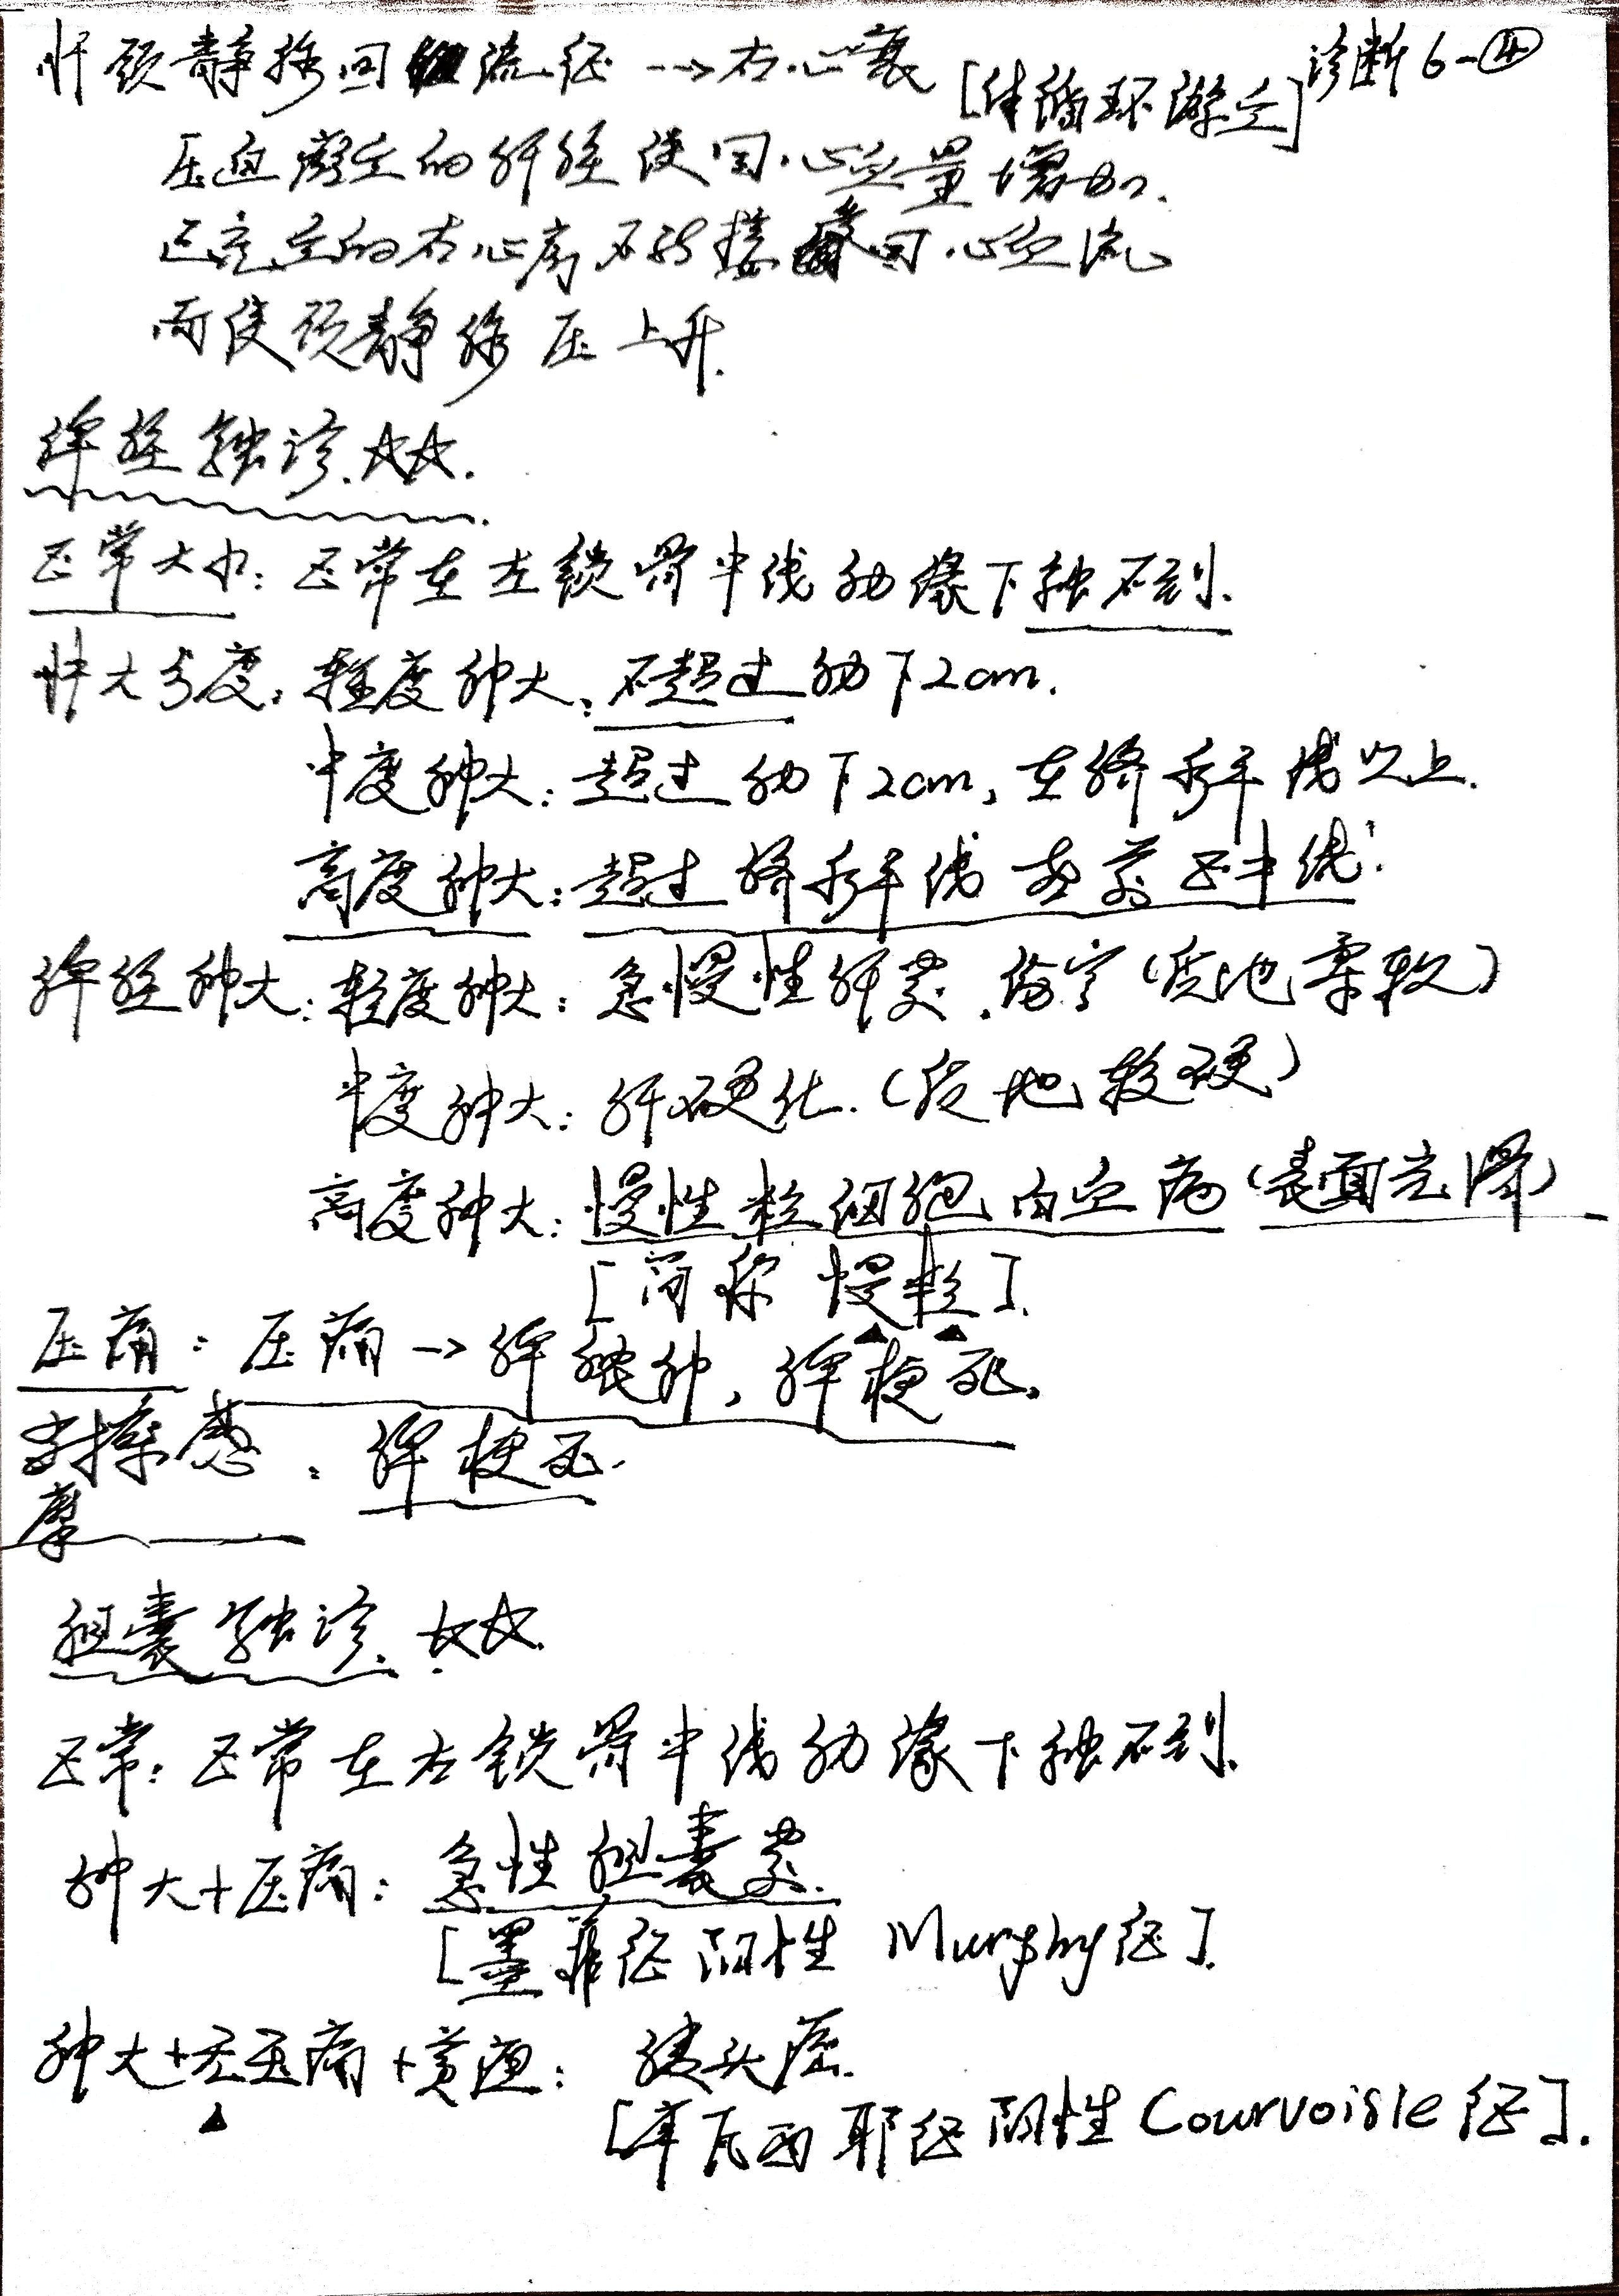 肝颈静脉回流征 → 右心衰 [体循环淤血] 诊断6-④
压迫淤血的肝脏使回心血量增加.
已充血的右心房不能接受回心血流
而使颈静脉压上升.
脾脏触诊.☆☆.
正常大小: 正常在左锁骨中线肋缘下触不到.
肿大分度: 轻度肿大: 不超过肋下2cm.
中度肿大: 超过肋下2cm, 在脐水平线以上.
高度肿大: 超过脐水平线或前正中线.
脾脏肿大: 轻度肿大: 急慢性肝炎.伤寒(质地柔软)
中度肿大: 肝硬化.(质地较硬)
高度肿大: 慢性粒细胞白血病(表面光滑)
[简称 慢粒].
压痛: 压痛→脾脓肿, 脾梗死.
摩擦感: 脾梗死.
胆囊触诊. ☆☆.
正常: 正常在右锁骨中线肋缘下触不到.
肿大+压痛: 急性胆囊炎.
[墨菲征阳性 Murphy征].
肿大+无压痛+黄疸: 胰头癌.
[库瓦西耶征阳性 Courvoisle征].